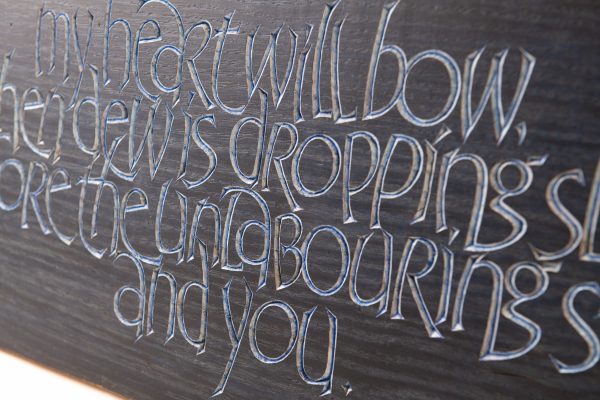 my heart will bow,
hen dew is dropping sl
ore the unlabouring s
and you.